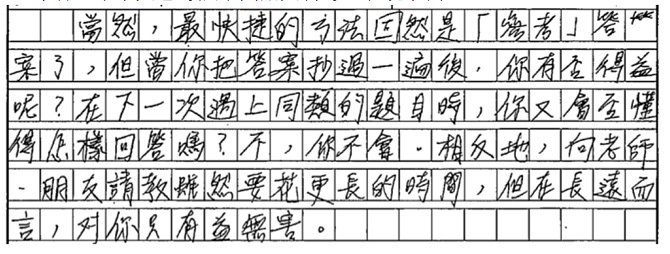 當然，最快捷的方法固然是「參考」答
案了，但當你把答案抄過一遍後，你有否得益
呢？在下一次遇上同類的題目時，你又會否懂
得怎樣回答嗎？不，你不會。相反地，向老師
、朋友請教雖然要花更長的時間，但在長遠而
言，对你只有益無害。